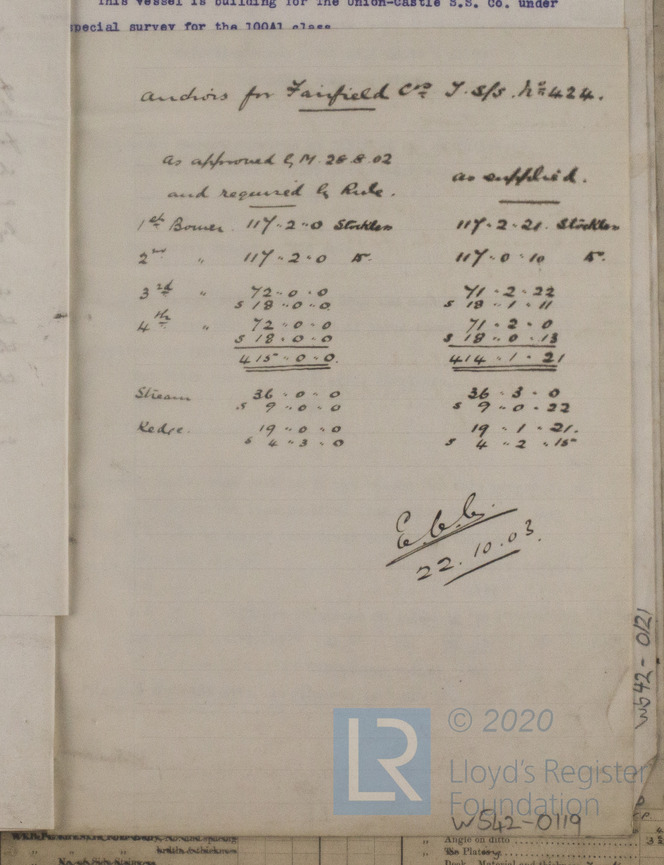 This vessel is building for The Union-Castle S.S. Co. under
special survey for the 100A1 class.
Anchors for Fairfield Coy T.S/S. No 424.
As approved by M. 28.8.02
and required by Rule.
as supplied.
1st Bower 117-2-0 Stockless 117-2-21. Stockless
2nd " 117-2-0 Do. 117-0-10 Do.
3rd " 72-0-0 71-2-22
s 18-0-0 s 18-1-11
4th " 72-0-0 71-2-0
s 18-0-0 s 18-0-13
415-0-0. 414-1-21
Stream 36-0-0 36-3-0
s 9-0-0 s 9-0-22
Kedge. 19-0-0 19-1-21.
s 4-3-0 s 4-2-15
22.10.03.
W542-0121
LR
© 2020
Lloyd's Register
Foundation
W542-0119
Angle on ditto
Plating